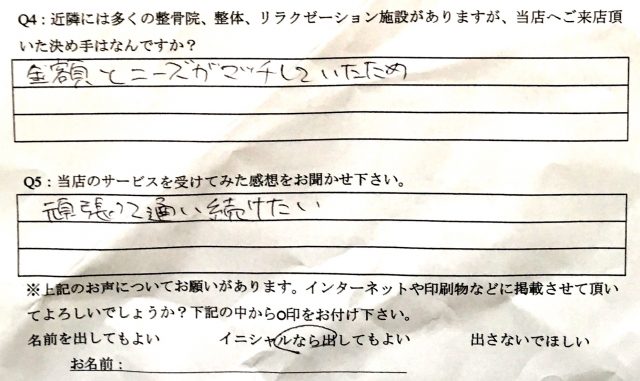 Q4：近隣には多くの整骨院、整体、リラクゼーション施設がありますが、当店へご来店頂
いた決め手はなんですか？
金額とニーズがマッチしていたため
Q5：当店のサービスを受けてみた感想をお聞かせ下さい。
頑張って通い続けたい
※上記のお声についてお願いがあります。インターネットや印刷物などに掲載させて頂い
てよろしいでしょうか？下記の中から○印をお付け下さい。
名前を出してもよい　イニシャルなら出してもよい　出さないでほしい
お名前：